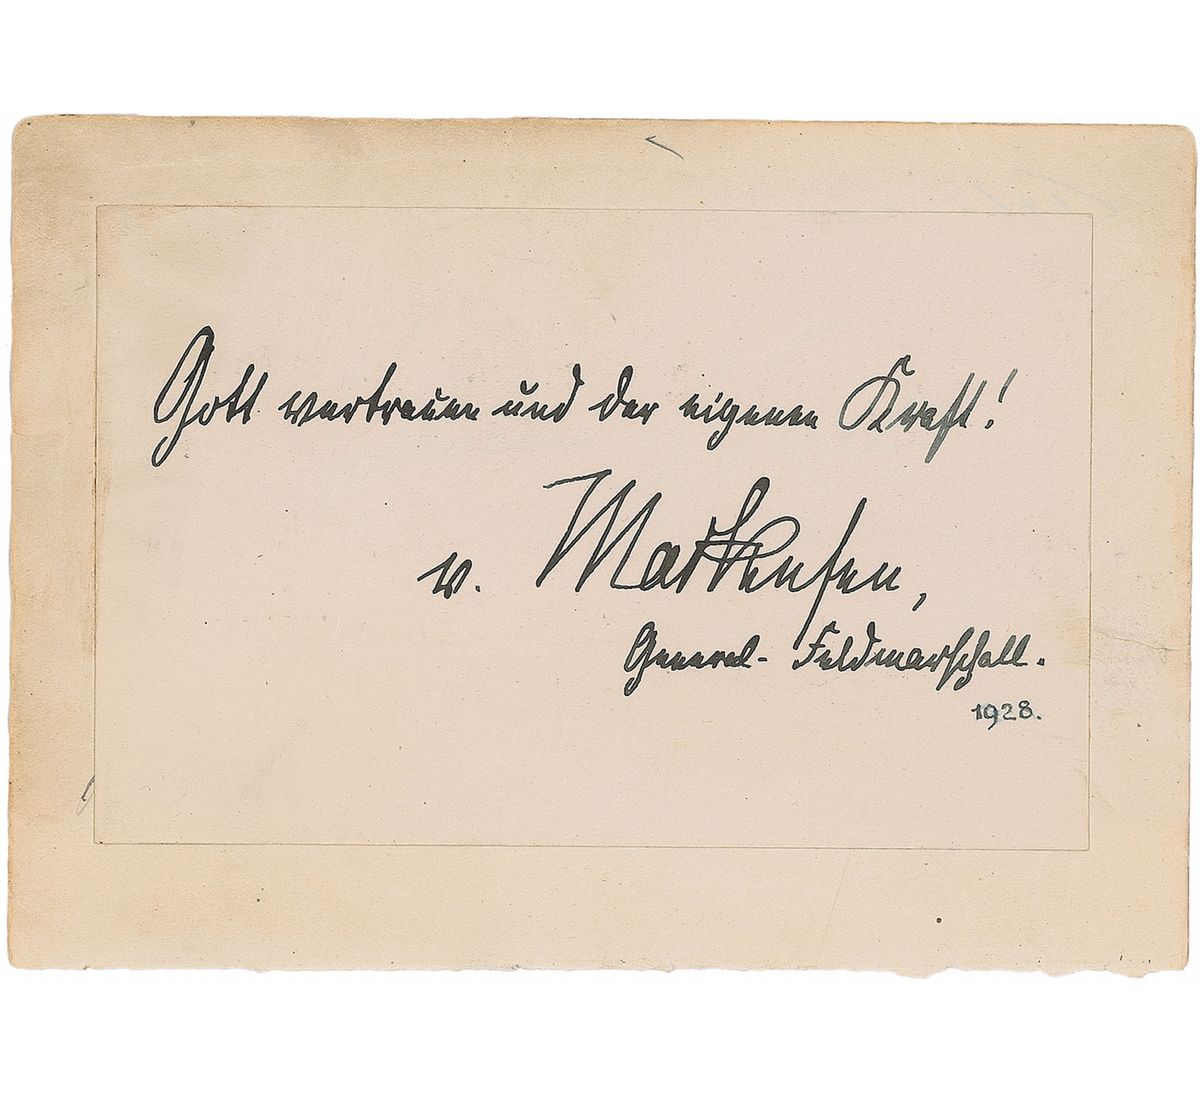 Gott vertrauen und der eigenen Kraft!
v. Mackensen,
General-Feldmarschall.
1928.